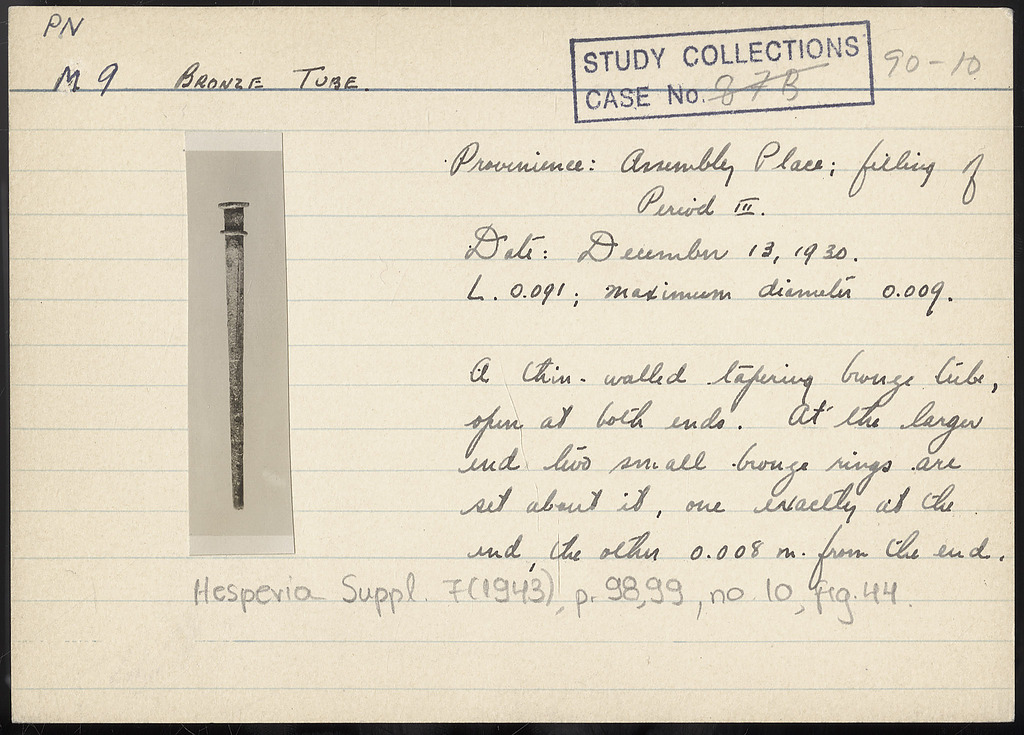 PN
M 9 BRONZE TUBE.
STUDY COLLECTIONS
CASE No. 87B
90-10
Provinience: Assembly Place; filling of
Period III.
Date: December 13, 1930.
L. 0.091; maximum diameter 0.009.
A thin-walled tapering bronze tube,
open at both ends. At the larger
end two small bronze rings are
set about it, one exactly at the
end, the other 0.008 m. from the end.
Hesperia Suppl. 7(1943), p. 98,99, no. 10, fig. 44.